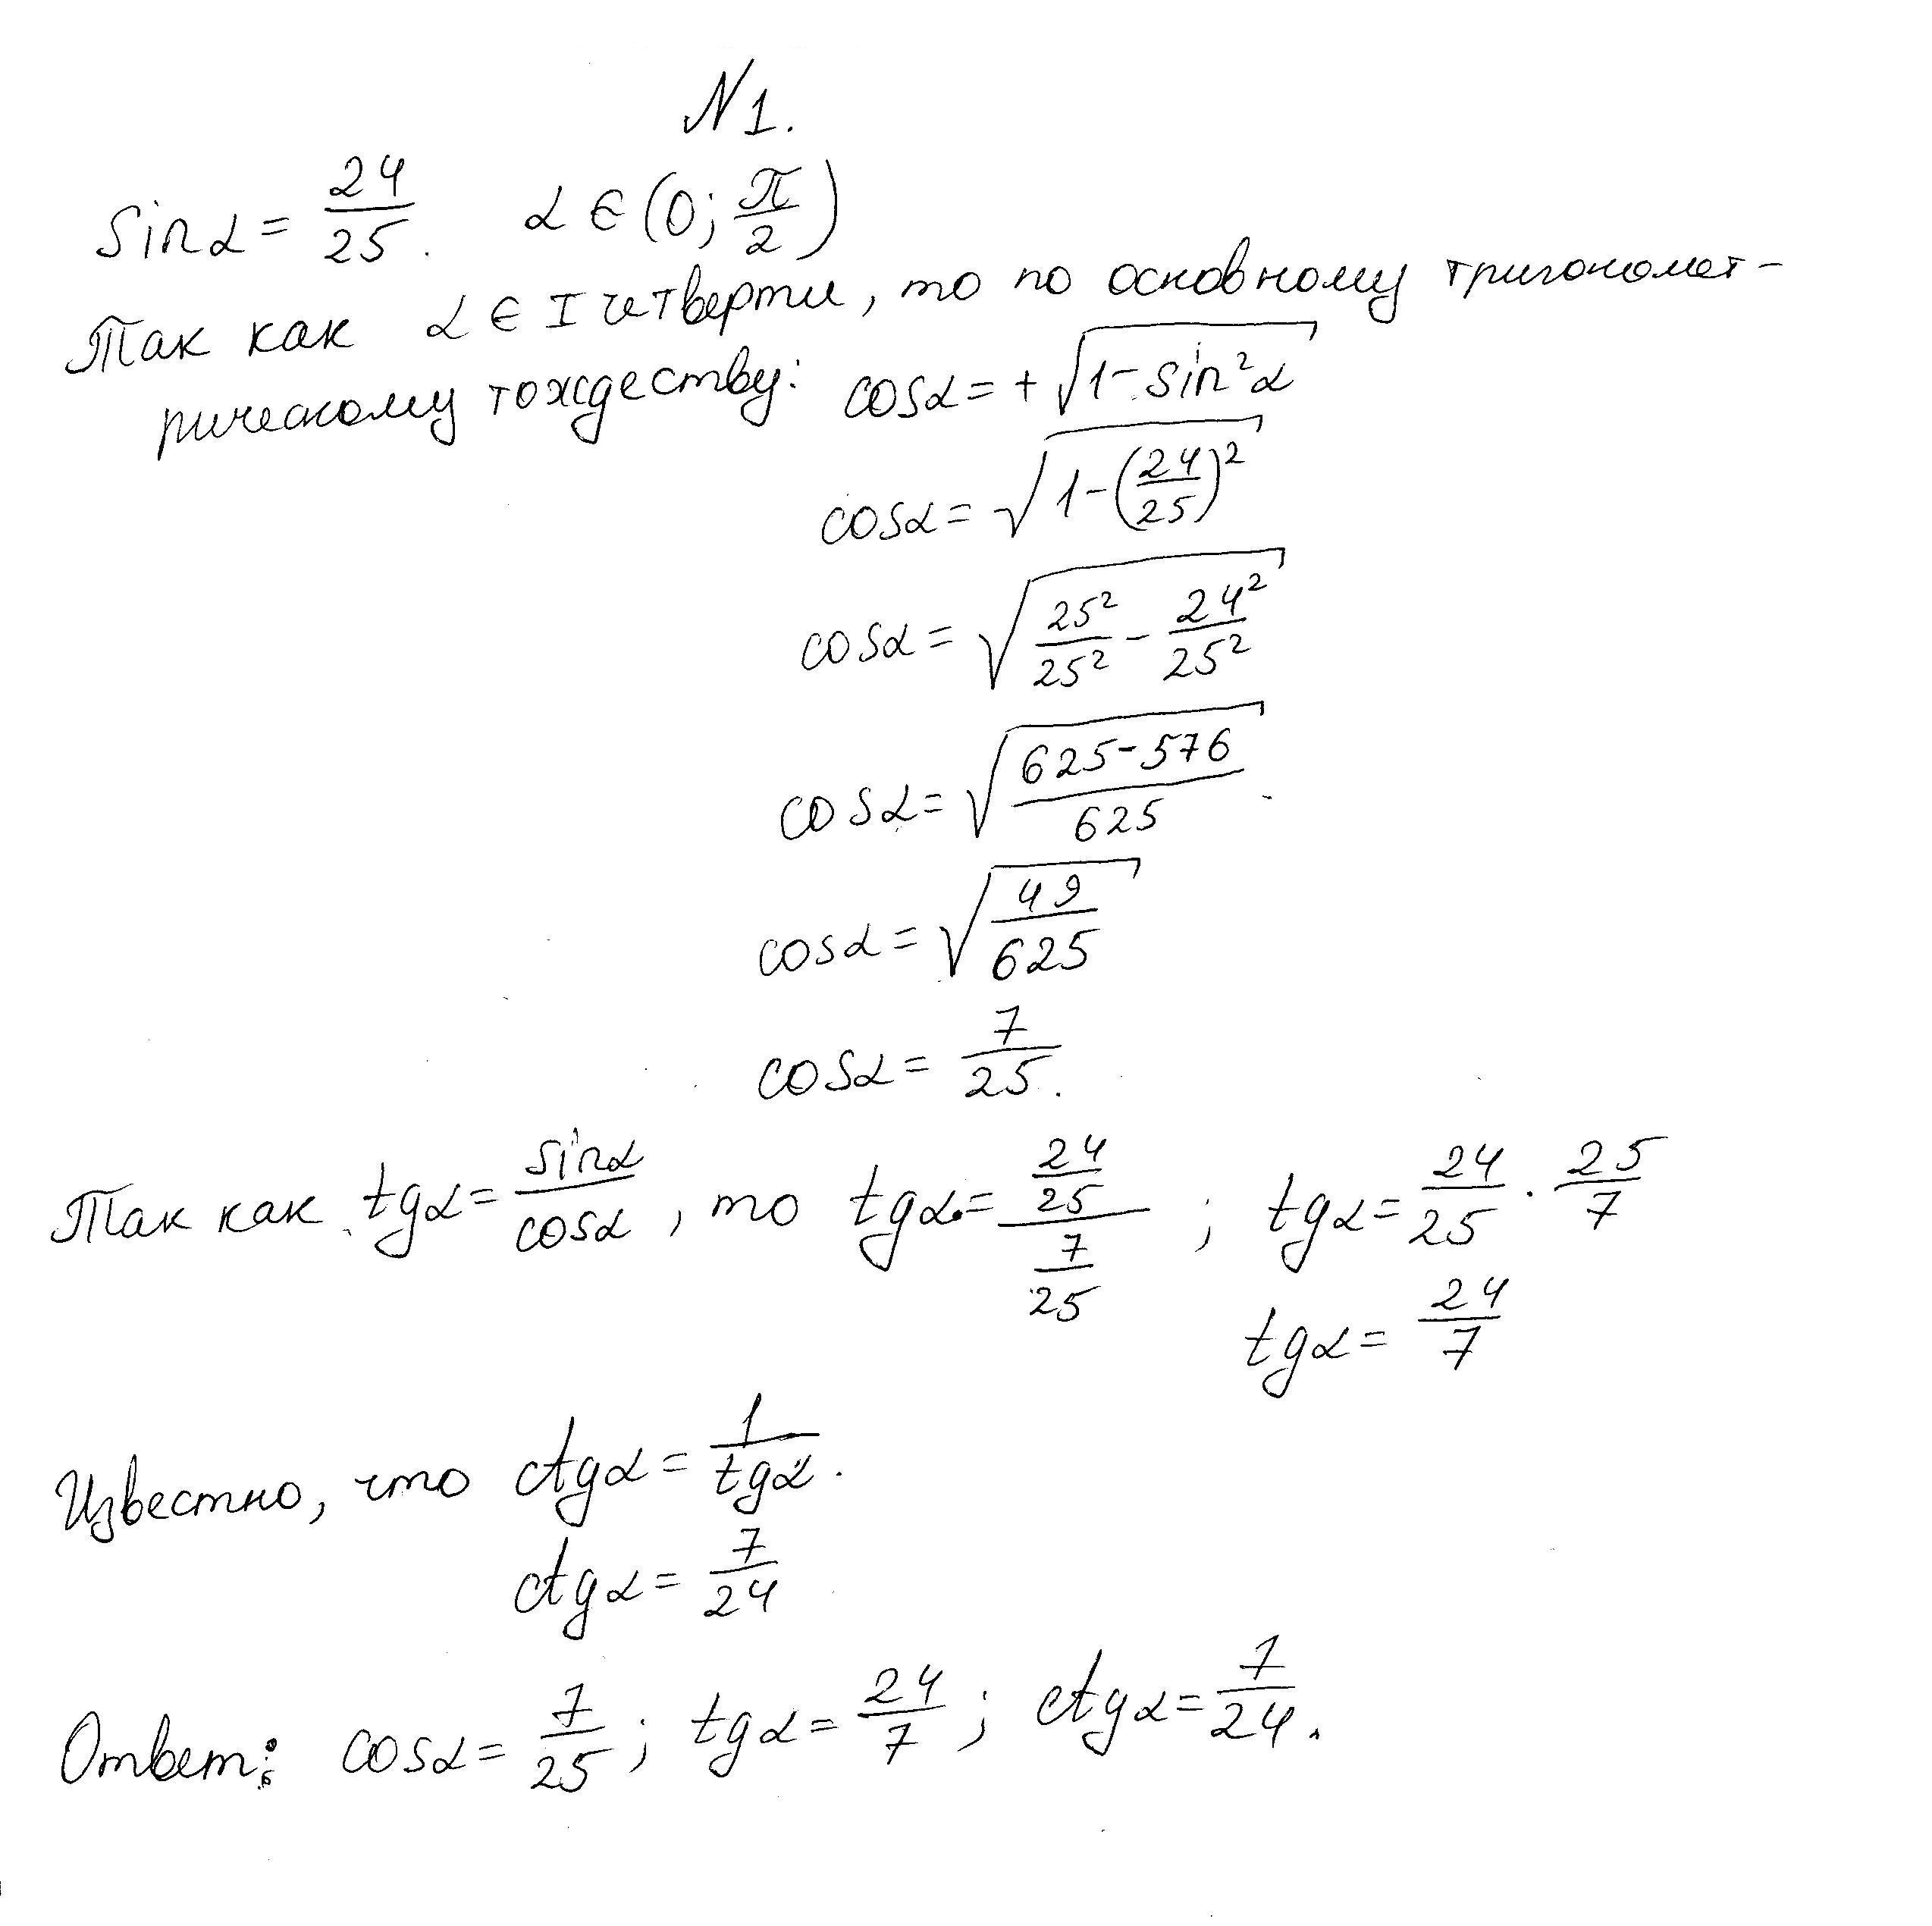 N1.
sinα = 24/25. α ∈ (0; π/2)
Так как α ∈ I четверти, то по основному тригономет-
рическому тождеству: cosα = +√(1 - sin²α)
cosα = √(1 - (24/25)²)
cosα = √(25²/25² - 24²/25²)
cosα = √((625 - 576)/625)
cosα = √(49/625)
cosα = 7/25.
Так как tgα = sinα/cosα, то tgα = (24/25)/(7/25); tgα = 24/25 · 25/7
tgα = 24/7
Известно, что ctgα = 1/tgα.
ctgα = 7/24
Ответ: cosα = 7/25; tgα = 24/7; ctgα = 7/24.